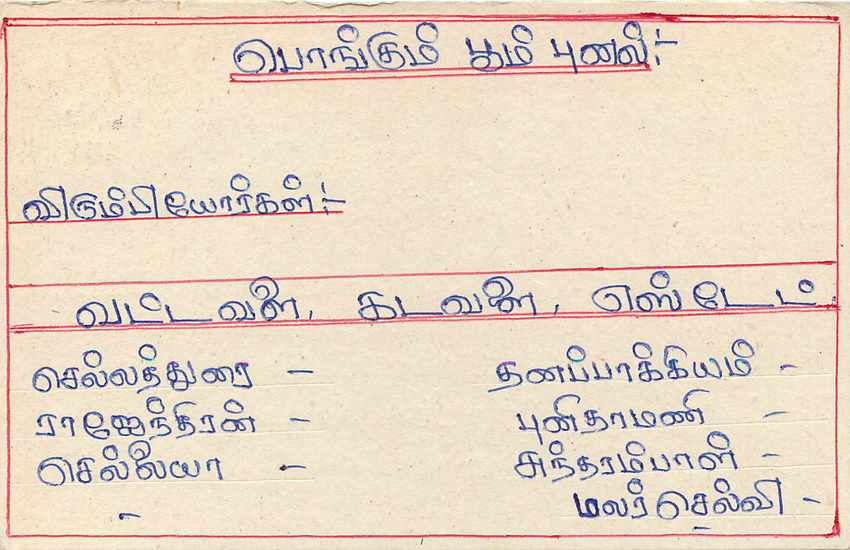 பொங்கும் பூம் புனல்:-
விரும்பியோர்கள்:-
வட்டவளை, கடவளை, எஸ்டேட்.
செல்லத்துரை - தனப்பாக்கியம் -
ராஜேந்திரன் - புனிதாமணி -
செல்லையா - சுந்தரம்பாள் -
- மலர்செல்வி -